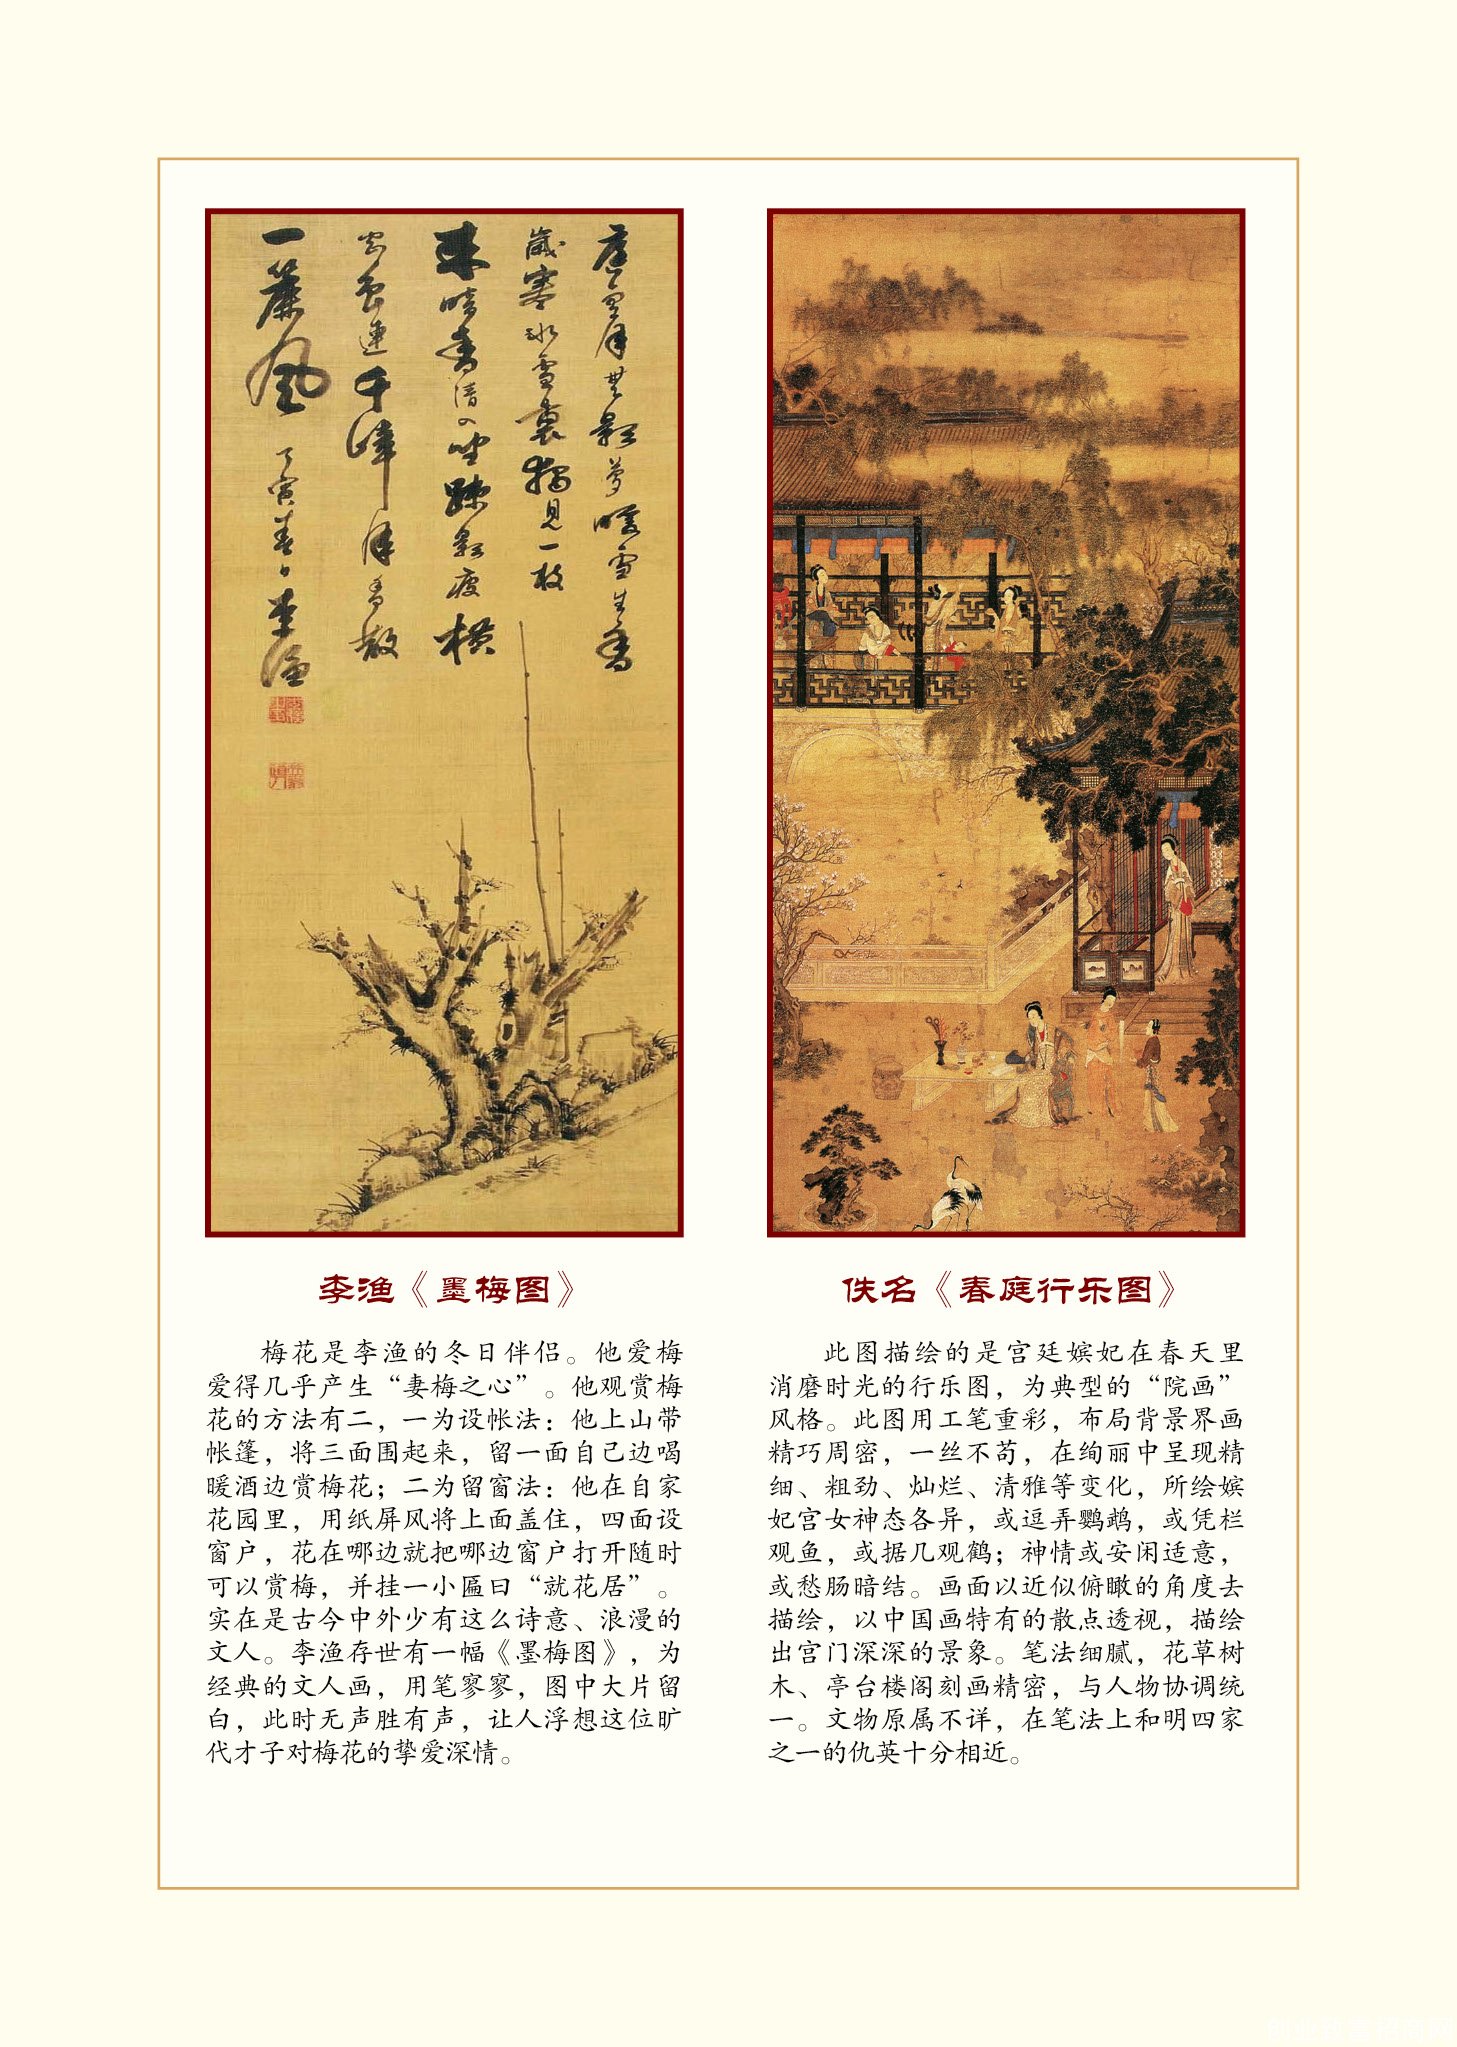 空月無影夢暖雪生香
歲寒冰雪裏獨見一枝
来暗香清坐疎影瘦横
色連千嶂月香散
一簾風
寅春日李漁
李渔《墨梅图》
梅花是李渔的冬日伴侣。他爱梅
爱得几乎产生“妻梅之心”。他观赏梅
花的方法有二，一为设帐法：他上山带
帐篷，将三面围起来，留一面自己边喝
暖酒边赏梅花；二为留窗法：他在自家
花园里，用纸屏风将上面盖住，四面设
窗户，花在哪边就把哪边窗户打开随时
可以赏梅，并挂一小匾曰“就花居”。
实在是古今中外少有这么诗意、浪漫的
文人。李渔存世有一幅《墨梅图》，为
经典的文人画，用笔寥寥，图中大片留
白，此时无声胜有声，让人浮想这位旷
代才子对梅花的挚爱深情。
佚名《春庭行乐图》
此图描绘的是宫廷嫔妃在春天里
消磨时光的行乐图，为典型的“院画”
风格。此图用工笔重彩，布局背景界画
精巧周密，一丝不苟，在绚丽中呈现精
细、粗劲、灿烂、清雅等变化，所绘嫔
妃宫女神态各异，或逗弄鹦鹉，或凭栏
观鱼，或据几观鹤；神情或安闲适意，
或愁肠暗结。画面以近似俯瞰的角度去
描绘，以中国画特有的散点透视，描绘
出宫门深深的景象。笔法细腻，花草树
木、亭台楼阁刻画精密，与人物协调统
一。文物原属不详，在笔法上和明四家
之一的仇英十分相近。